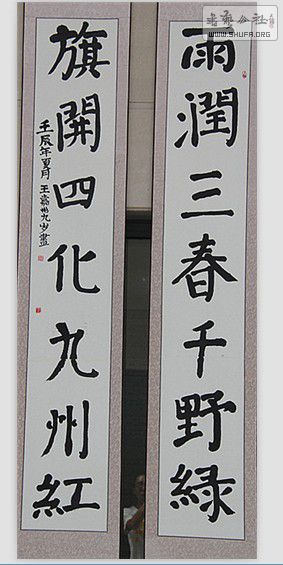 書藝公社
WWW.SHUFA.ORG
雨潤三春千野緑
旗開四化九州紅
壬辰年夏月 王嘉 九岁書